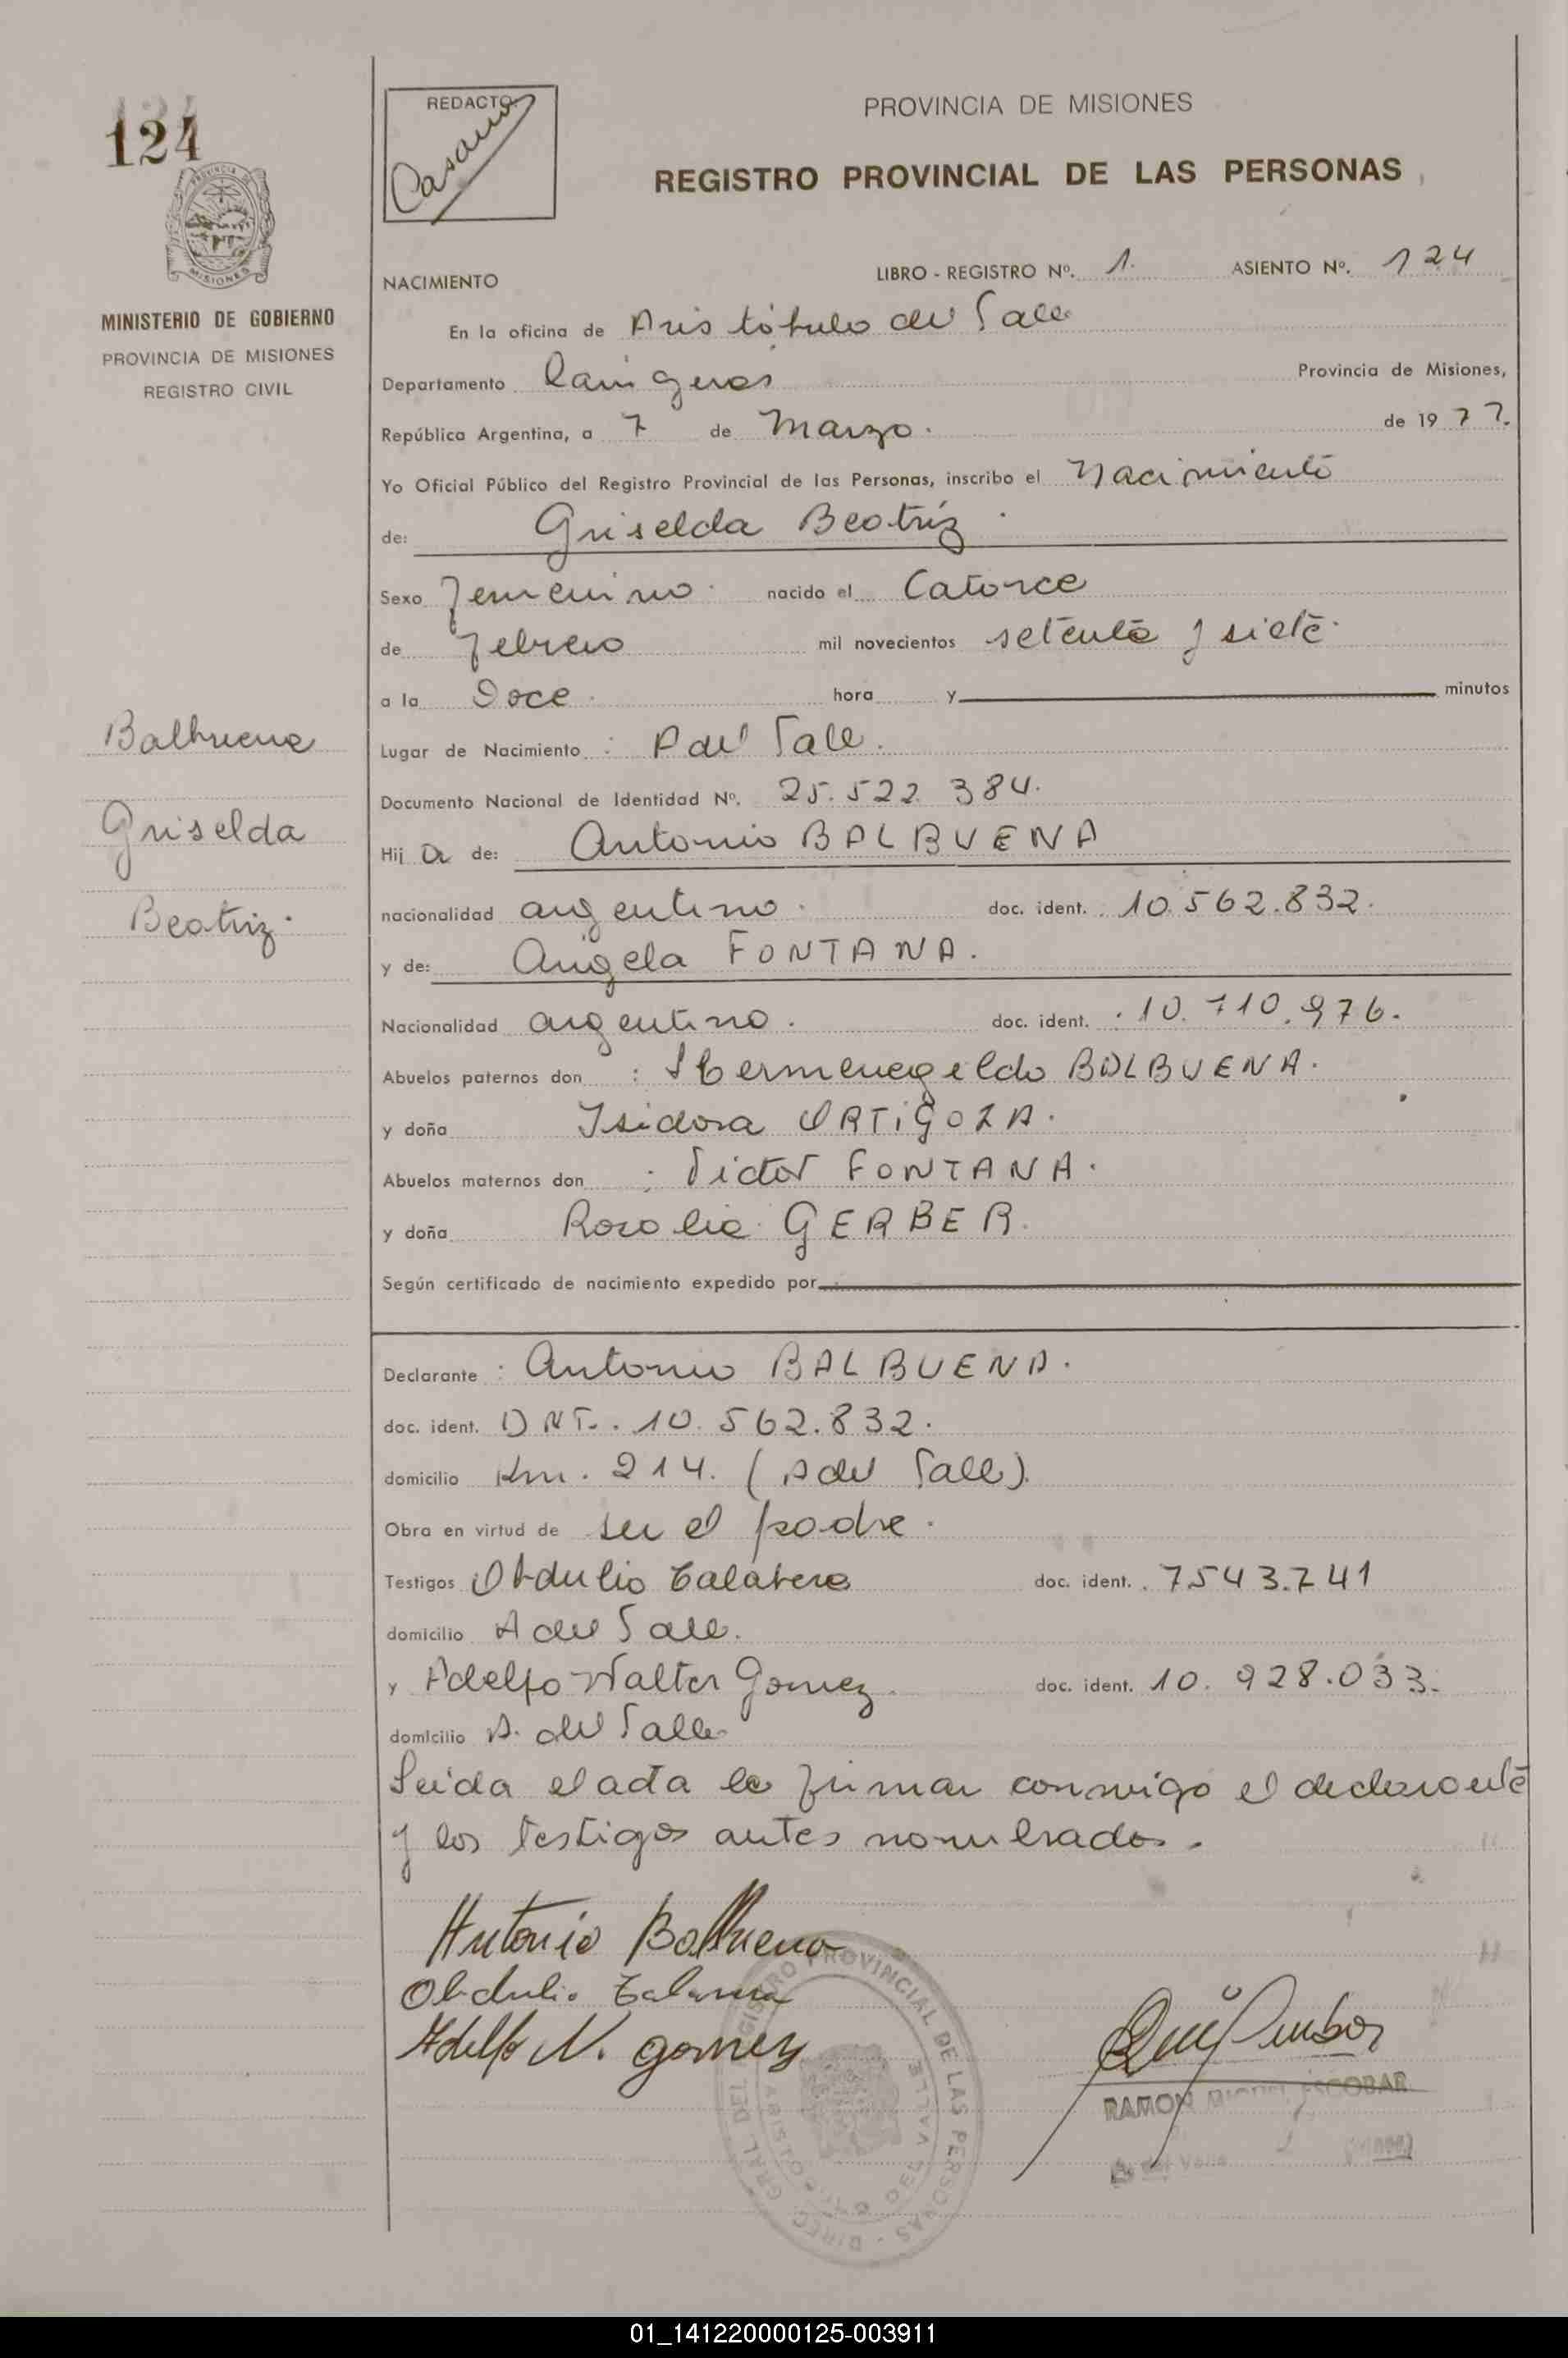 124
REDACTO:
Casano
PROVINCIA DE MISIONES
REGISTRO PROVINCIAL DE LAS PERSONAS
PROVINCIA DE MISIONES
MINISTERIO DE GOBIERNO
PROVINCIA DE MISIONES
REGISTRO CIVIL
NACIMIENTO LIBRO - REGISTRO Nº. 1. ASIENTO Nº. 124
En la oficina de Aristóbulo del Valle
Departamento Cainguas Provincia de Misiones,
República Argentina, a 7 de Marzo. de 1977.
Yo Oficial Público del Registro Provincial de las Personas, inscribo el Nacimiento
de: Griselda Beatríz.
Sexo Femenino. nacido el Catorce
de Febrero mil novecientos setenta y siete.
a la Doce. hora y minutos
Balbuena
Griselda
Beatriz.
Lugar de Nacimiento : A del Valle.
Documento Nacional de Identidad Nº. 25.522.384.
Hij a de: Antonio BALBUENA
nacionalidad argentino. doc. ident. 10.562.832.
y de: Angela FONTANA.
Nacionalidad argentino. doc. ident. : 10.710.976.
Abuelos paternos don : Hermenegildo BALBUENA.
y doña Isidora ORTIGOZA.
Abuelos maternos don : Victor FONTANA.
y doña Rosalia GERBER.
Según certificado de nacimiento expedido por
Declarante : Antonio BALBUENA.
doc. ident. DNI. 10.562.832.
domicilio Km. 214. (A del Valle).
Obra en virtud de ser el padre.
Testigos Obdulio Talavera doc. ident. 7543.741
domicilio A del Valle.
y Adelfo Walter Gomez. doc. ident. 10.928.033.
domicilio A. del Valle
Leida el acta la firman conmigo el declarante
y los testigos antes nombrados.
Antonio Balbuena
Obdulio Talavera
Adelfo W. gomez
DIREC. GRAL. DEL REGISTRO PROVINCIAL DE LAS PERSONAS
ARISTOBULO DEL VALLE
RAMON MIGUEL ESCOBAR
del Valle
01_141220000125-003911